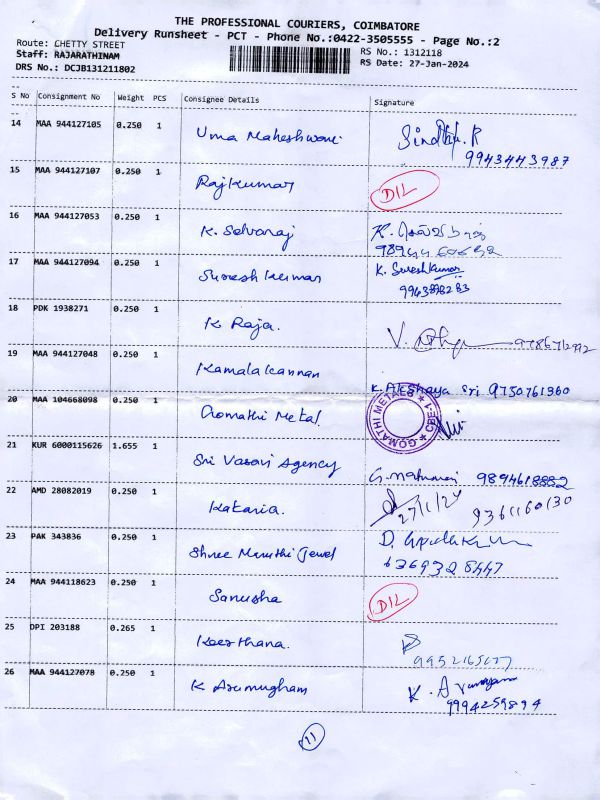 THE PROFESSIONAL COURIERS, COIMBATORE
Delivery Runsheet - PCT - Phone No.:0422-3505555 - Page No.:2
Route: CHETTY STREET
RS No.: 1312118
Staff: RAJARATHINAM
RS Date: 27-Jan-2024
DRS No.: DCJB131211802
S No Consignment No Weight PCS Consignee Details Signature
14 MAA 944127105 0.250 1 Uma Maheshwari
9943443987
15 MAA 944127107 0.250 1 Rajkumar DIL
16 MAA 944127053 0.250 1 K. Selvaraj
17 MAA 944127094 0.250 1 Suresh Kumar K. SureshKumar
18 PDK 1938271 0.250 1 K Raja.
19 MAA 944127048 0.250 1 Kamalakannan
K. Akshaya Sri 9750761360
20 MAA 104668098 0.250 1 Gomathi Metal GOMATHI METALS CBE-1
21 KUR 6000115626 1.655 1 Sri Vasavi Agency
9894618882
22 AMD 28082019 0.250 1 Kakaria. 27/1/24
23 PAK 343836 0.250 1 Shree Maruthi Jewel
6369328447
24 MAA 944118623 0.250 1 Sanusha DIL
25 DPI 203188 0.265 1 Keerthana.
26 MAA 944127078 0.250 1 K Arumugham K.
9994259894
11